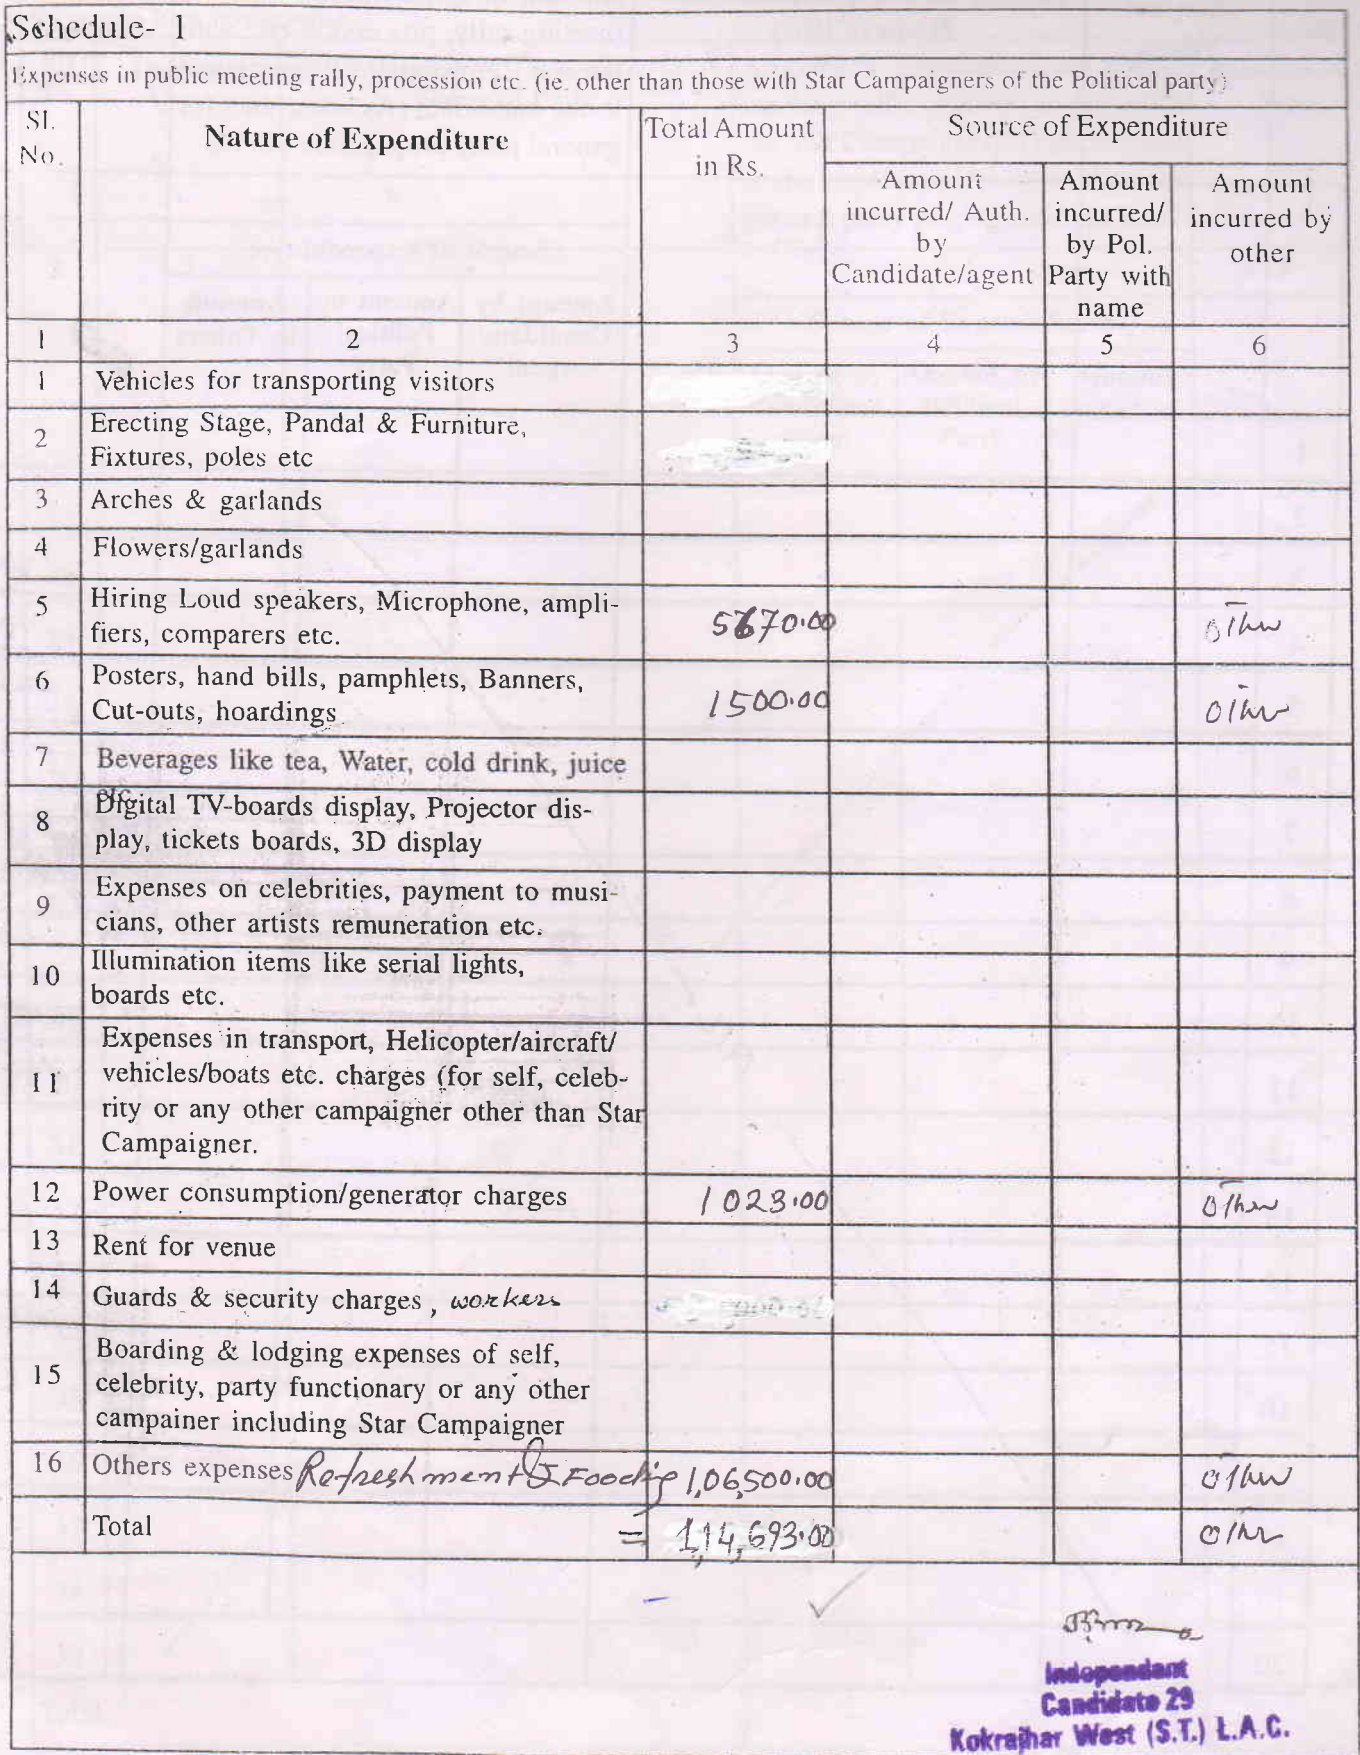 Schedule- 1
Expenses in public meeting rally, procession etc. (ie. other than those with Star Campaigners of the Political party)
Sl. No. Nature of Expenditure Total Amount in Rs. Source of Expenditure
Amount incurred/ Auth. by Candidate/agent Amount incurred/ by Pol. Party with name Amount incurred by other
1 2 3 4 5 6
1 Vehicles for transporting visitors
2 Erecting Stage, Pandal & Furniture,
Fixtures, poles etc
3 Arches & garlands
4 Flowers/garlands
5 Hiring Loud speakers, Microphone, ampli-
fiers, comparers etc. 5670.00 other
6 Posters, hand bills, pamphlets, Banners,
Cut-outs, hoardings 1500.00 other
7 Beverages like tea, Water, cold drink, juice
8 Digital TV-boards display, Projector dis-
play, tickets boards, 3D display
9 Expenses on celebrities, payment to musi-
cians, other artists remuneration etc.
10 Illumination items like serial lights,
boards etc.
11 Expenses in transport, Helicopter/aircraft/
vehicles/boats etc. charges (for self, celeb-
rity or any other campaigner other than Star
Campaigner.
12 Power consumption/generator charges 1023.00 other
13 Rent for venue
14 Guards & security charges, workers
15 Boarding & lodging expenses of self,
celebrity, party functionary or any other
campainer including Star Campaigner
16 Others expenses Refreshment & Fooding 1,06,500.00 other
Total = 1,14,693.00 other
Independant
Candidate 29
Kokrajhar West (S.T.) L.A.C.